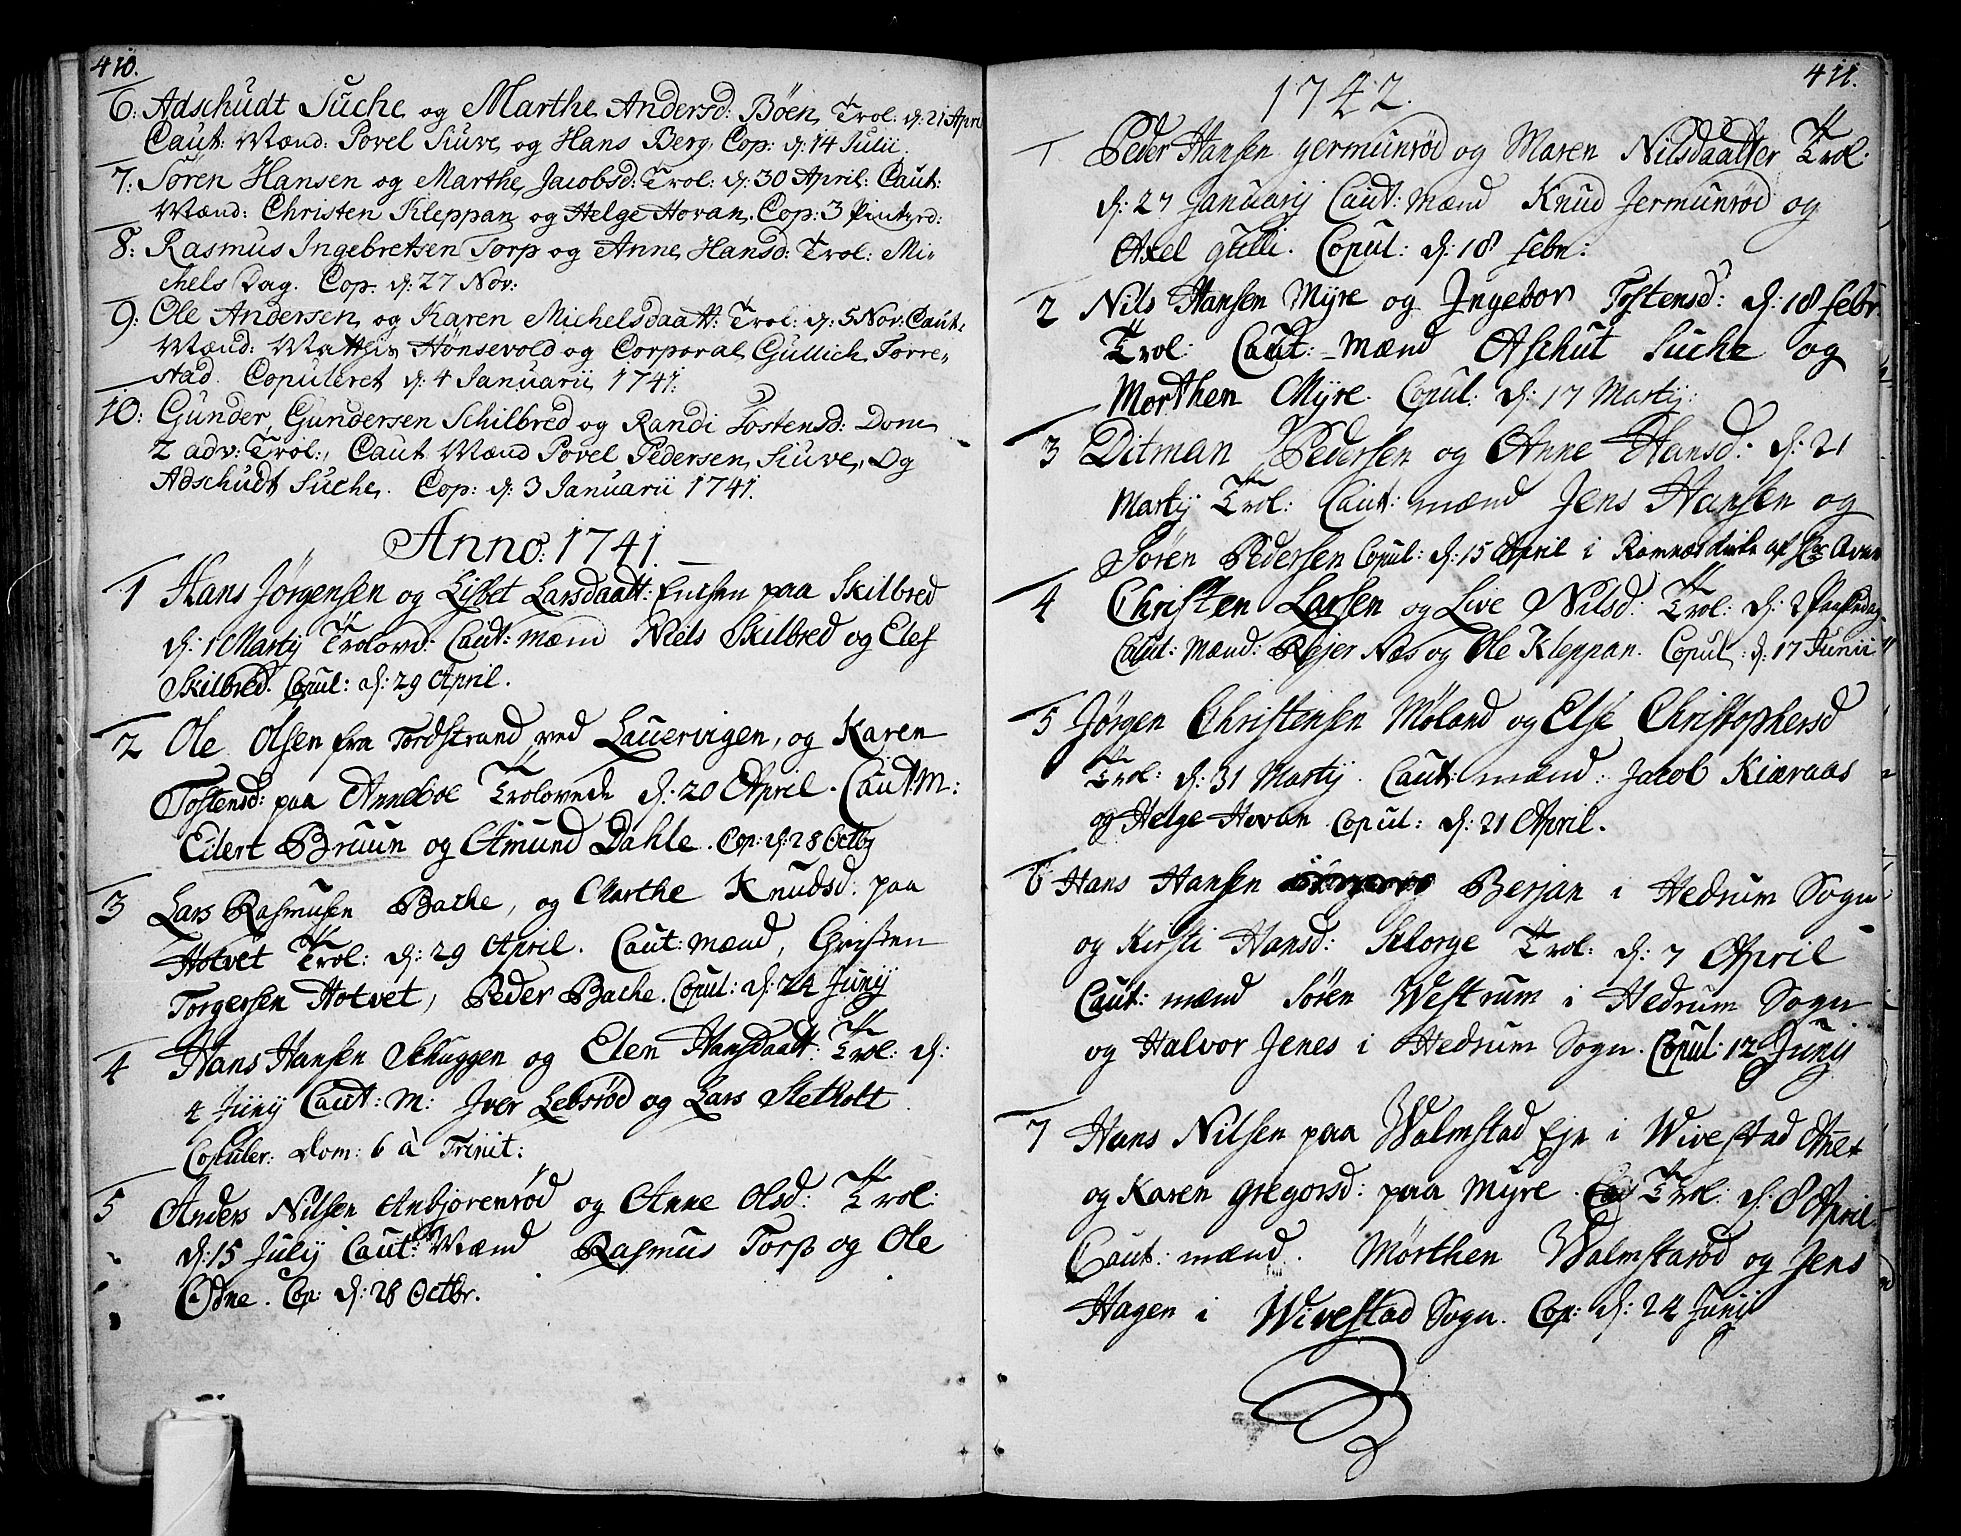 410.
6: Adschudt Suche og Marthe Andersd: Böen Trol: d: 21 April
Caut: Mænd: Povel Siuve og Hans Berg. Cop: d: 14 Julii.
7: Søren Hansen og Marthe Jacobsd: Trol: d: 30 April: Caut:
Mænd: Christen Kleppan og Helge Hovan. Cop: 3 Pintzd:
8: Rasmus Ingebretsen Torp og Anne Hansd: Trol: Mi-
chels Dag. Cop: d: 27 Nov:
9: Ole Andersen og Karen Michelsdaatt: Trol: d: 5 Nov: Caut:
Mænd: Matthis Hönsevold og Corporal Gullich Torre-
stad. Copuleret d: 4 Januarii 1741.
10: Gunder Gundersen Schilbred og Randi Tostensd: Dom
2 adv: Trol:, Caut Mænd Povel Pedersen Siuve, Og
Adschudt Suche. Cop: d: 3 Januarii 1741.
Anno: 1741.
1 Hans Jörgensen og Lisbet Larsdaatt: paa Skilbred
d: 1 Martij Trolovd: Caut: mænd Niels Skilbred og Elef
Skilbred. Copul: d: 29 April.
2 Ole Olsen fra Tordstrand ved Lauervigen, og Karen
Tostensd: paa Anneboe Trolovede d: 20 April. Caut: M:
Eilert Bruun og Amund Dahle. Cop: d: 28 Octbr
3 Lars Rasmusen Bache, og Marthe Knudsd: paa
Hotvet Trol: d: 29 April. Caut: Mænd, Christen
Torgersen Hotvet, Peder Bache. Copul: d: 24 Junij
4 Hans Hansen Schuggen og Elen Hansdaatt: Trol: d:
4 Junij Caut: M: Iver Lebsröd og Lars Stetholt
Copuler: Dom: 6 à Trinit:
5 Anders Nilsen Anbjörenröd og Anne Olsd: Trol:
d: 15 Julij Caut: Mænd Rasmus Torp og Ole
Odne. Cop: d: 28 Octbr.
411.
1742.
1 Peder Hansen germunröd og Maren Nilsdaatter Trol:
d: 27 Januarij Caut: mænd Knud Jermunröd og
Axel gulli. Copul: d: 18 febr:
2 Nils Hansen Myre og Ingebor Tostensd: d: 18 febr.
Trol: Caut: mænd Aschut Suche og
Morthen Myre. Copul: d: 17 Martij:
3 Ditman Pedersen og Anne Hansd: d: 21
Martij Trol: Caut: mænd Jens Hansen og
Sören Pedersen Copul: d: 15 April i Ramnæs Kirke af Hr
4 Christen Larsen og Live Nilsd: Trol: d: 2 Paaskedag
Caut: Mænd: Rejer Næs og Ole Kleppan. Copul: d: 17 Junii
5 Jörgen Christensen Möland og Else Christophersd
Trol: d: 31 Martij. Caut: mænd: Jacob Kiæraas
og Helge Hovan. Copul: d: 21 April.
6 Hans Hansen Berjan i Hedrum Sogn
og Kirsti Hansd: Klorge Trol: d: 7 April
Caut: mænd Sören Westrum i Hedrum Sogn
og Halvor Jenes i Hedrum Sogn. Copul: 12 Junij
7 Hans Nilsen paa Walmstad Eje i Wivestad
og Karen gregorsd: paa Myre. Trol: d: 8 April
Caut: mænd. Mørthen Walmstaröd og Jens
Hagen i Wivestad Sogn. Cop: d: 24 Junij